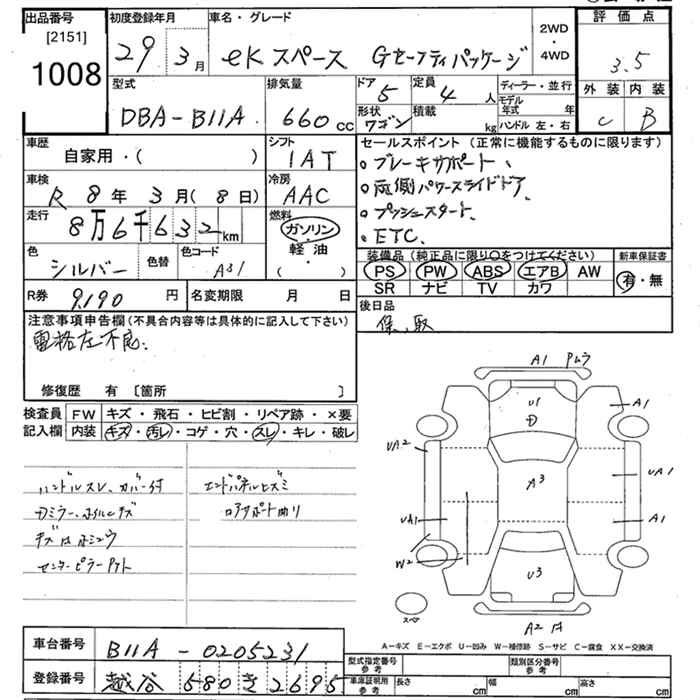 出品番号
[2151]
1008
初度登録年月
29 3月
車名・グレード
eKスペース Gセーフティパッケージ
2WD
・
4WD
評価点
3.5
外装 内装
C B
型式
DBA-B11A
排気量
660 cc
ドア
5
定員
4 人
形状
ワゴン
積載
kg
ディーラー・並行
モデル年式 年
ハンドル 左・右
車歴
自家用・( )
シフト
IAT
セールスポイント (正常に機能するものに限ります)
・ブレーキサポート、
・両側パワースライドドア、
・プッシュスタート、
・ETC、
車検
R 8年 3月(8日)
冷房
AAC
走行
8万6千632km
燃料
ガソリン
・
軽油
( )
色
シルバー
色替
色コード
A31
装備品 (純正品に限り○をつけてください)
PS PW ABS エアB AW
SR ナビ TV カワ
新車保証書
有・無
R券 9,190 円
名変期限 月 日
後日品
保、取
注意事項申告欄 (不具合内容等は具体的に記入して下さい)
電格左不良.
修復歴 有 [箇所 ]
検査員 記入欄
FW キズ・飛石・ヒビ割・リペア跡・×要
内装 キズ・汚レ・コゲ・穴・スレ・キレ・破レ
ハンドルスレ、カバー付
Dミラー、ホイルキズ
センターピラーアト
エンドパネルヒズミ
コアサポート曲り
A1
U1
D
A1
UA2
A3
UA1
UA1
A1
W2
U3
スペア
A2
A-キズ E-エクボ U-凹み W-補修跡 S-サビ C-腐食 XX-交換済
車台番号
B11A-0205231
登録番号
越谷 580 き 2695
型式指定番号
参考
類別区分番号
参考
車庫証明用
参考
長さ cm
幅 cm
高さ cm